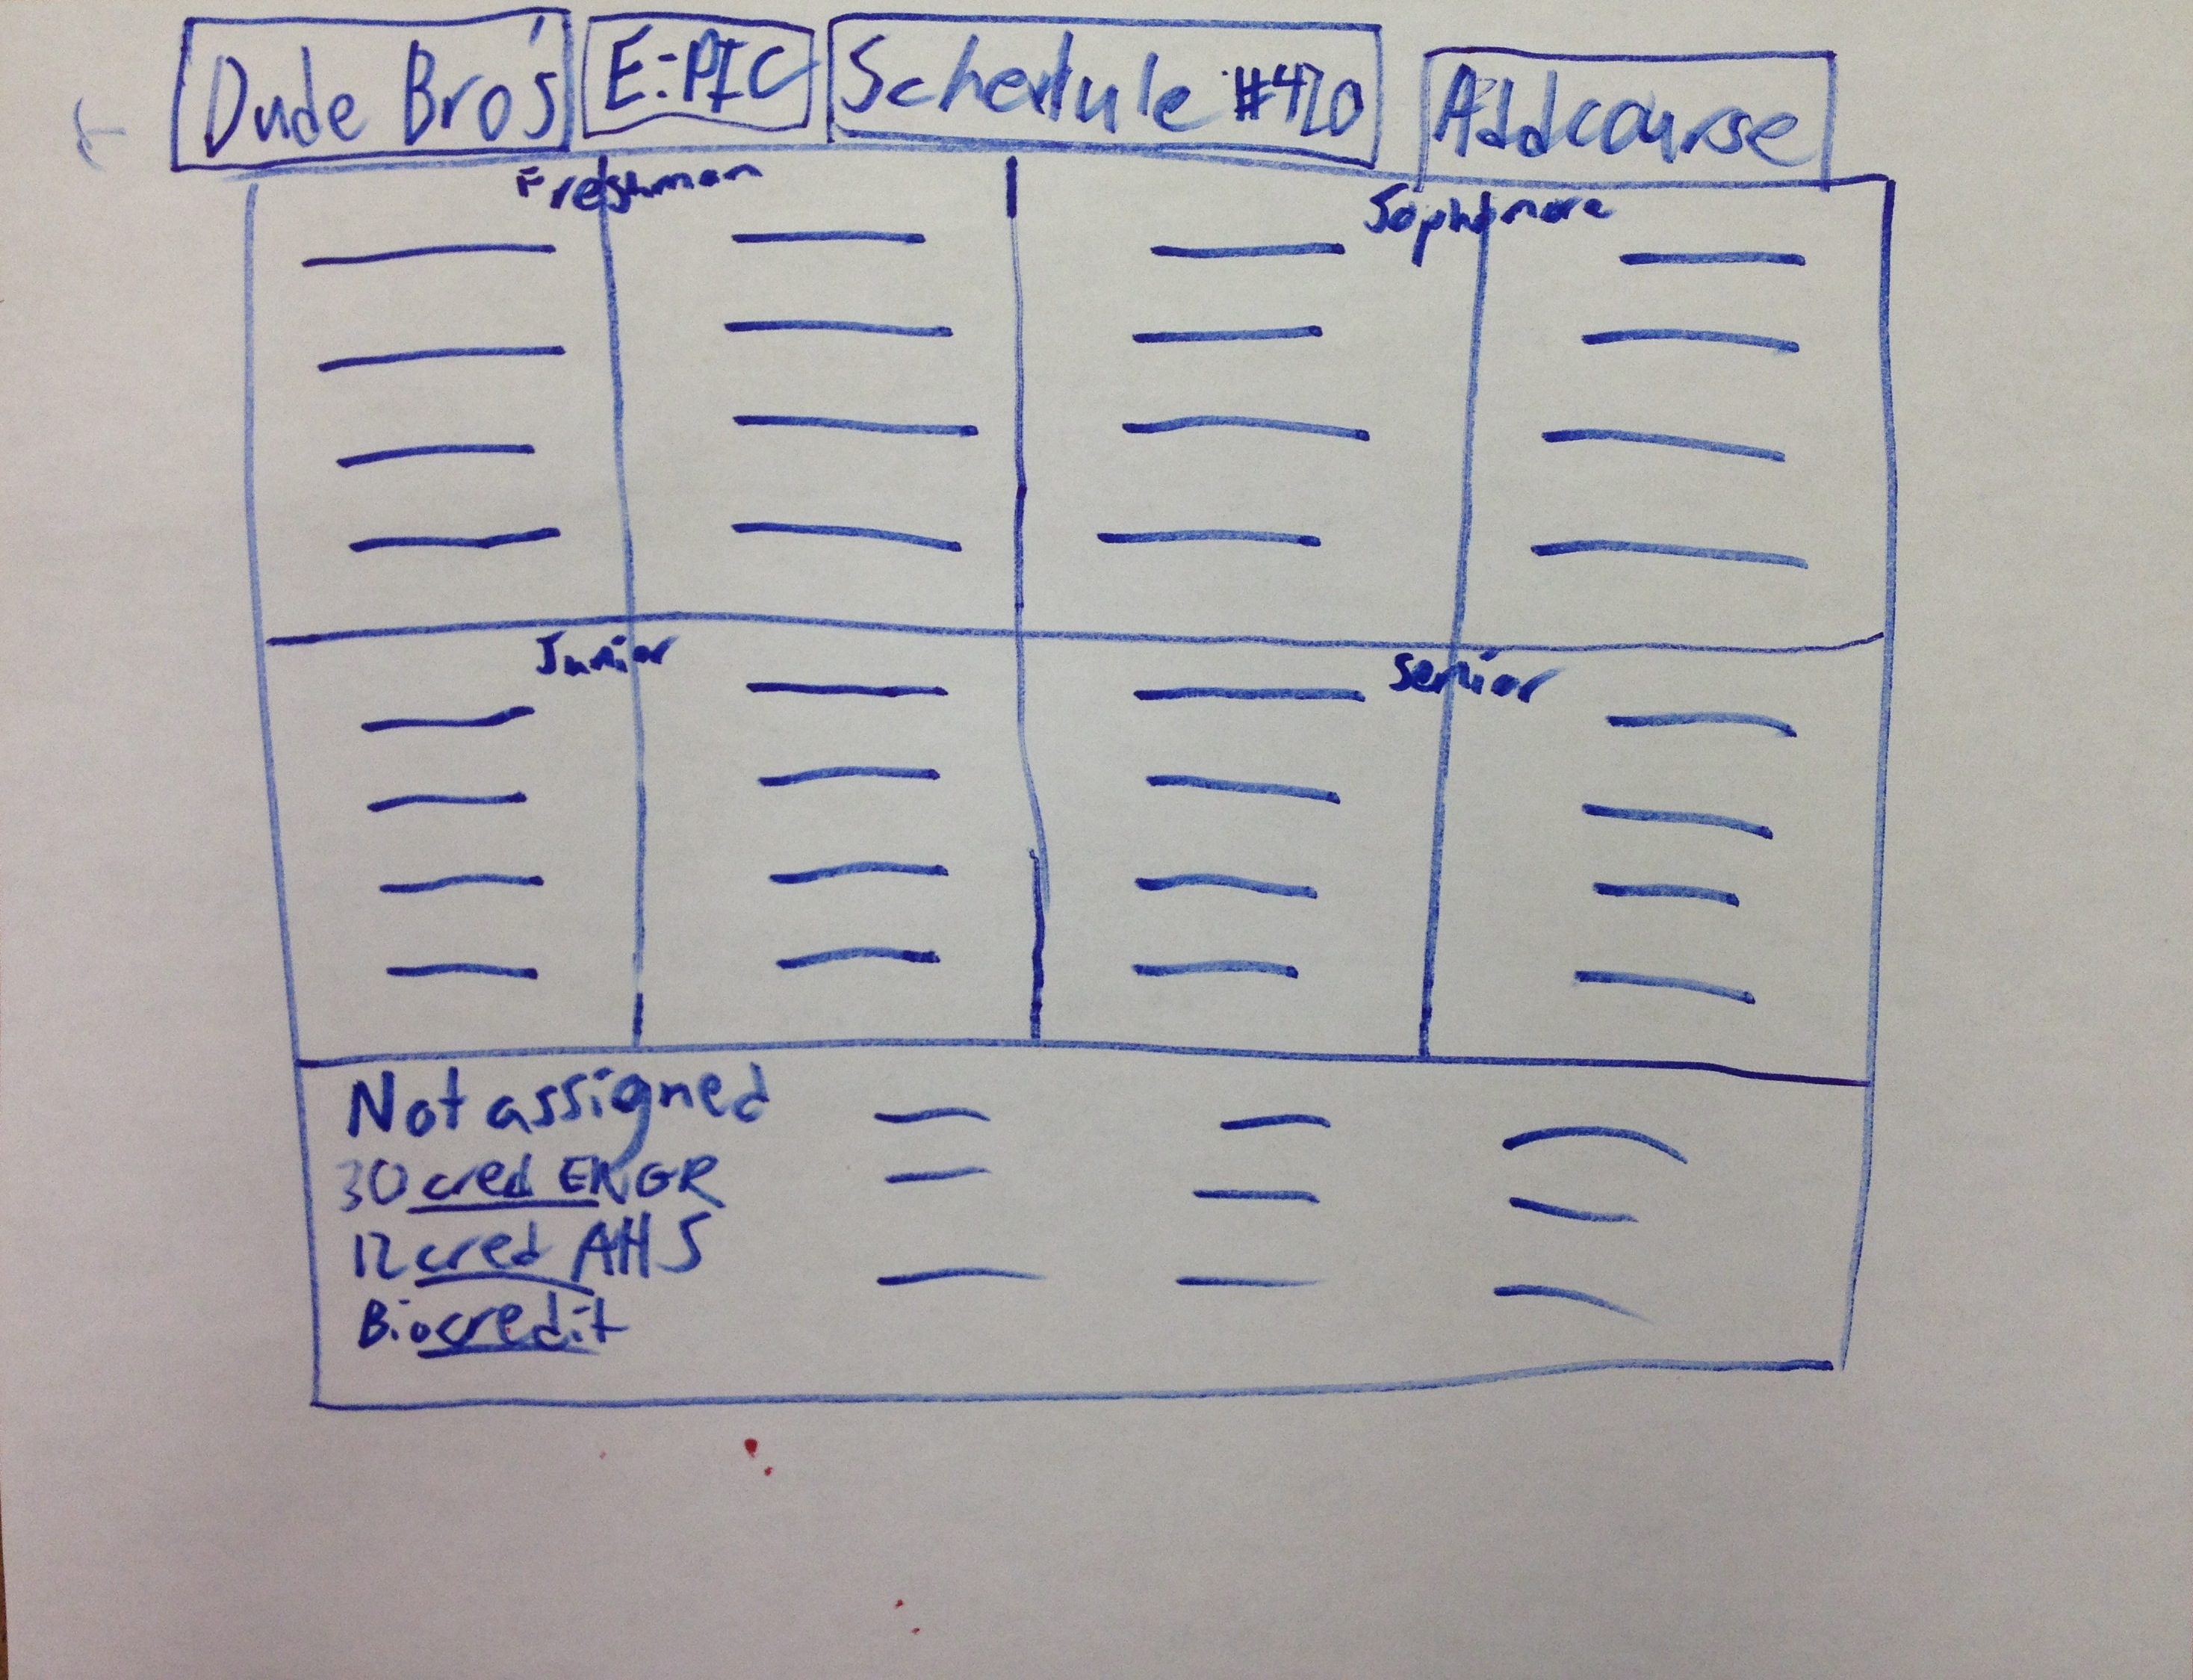 Dude Bro's E:PIC Schedule #420 Add course
Freshman Sophomore
Junior Senior
Not assigned
30 cred ENGR
12 cred AHS
Bio credit